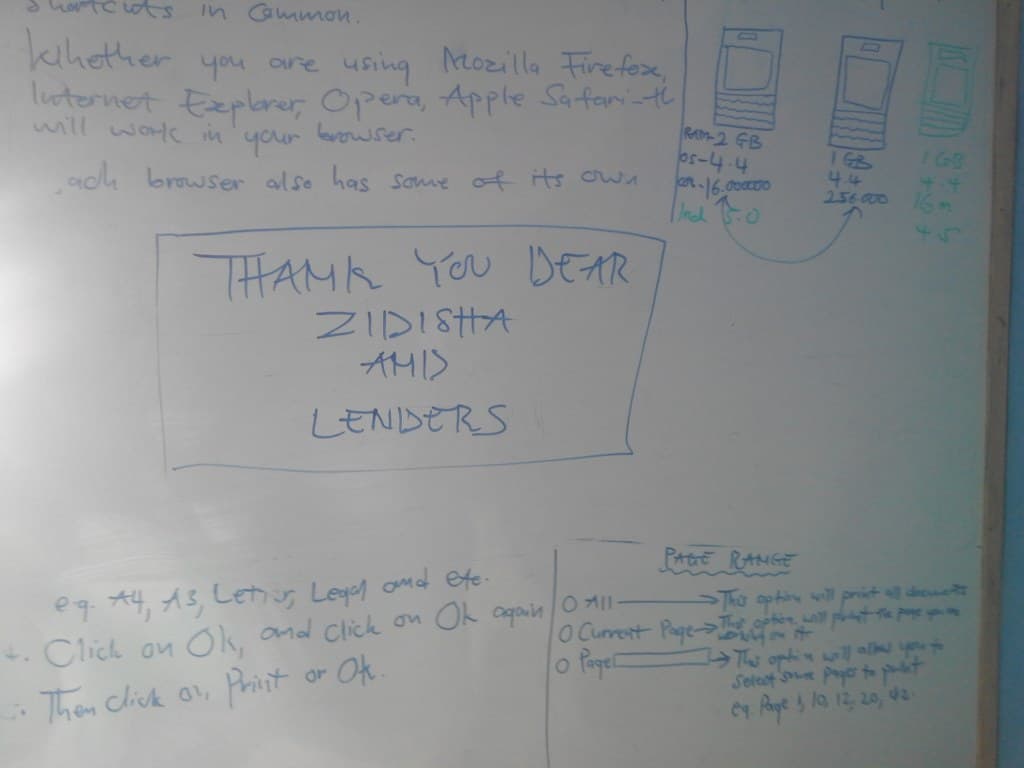 Shortcuts in Common.
Whether you are using Mozilla Firefox,
Internet Explorer, Opera, Apple Safari-th
will work in your browser.
ach browser also has some of its own
RAM-2 GB
OS-4.4
16.000000
5.0
1 GB
4.4
256000
1 GB
4.4
16m
4.5
THANK YOU DEAR
ZIDISHA
AND
LENDERS
eg. A4, A3, Letter, Legal and etc.
Click on Ok, and click on Ok again
Then click on Print or Ok.
PAGE RANGE
O All → This option will print all documents
O Current Page → This option will print the page you are
working on it
O Page → This option will allow you to
select some pages to print
eg. Page 1, 10, 12, 20, 42